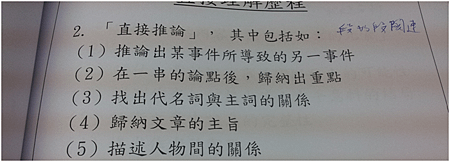 直接理解歷程
2. 「直接推論」，其中包括如：
(1) 推論出某事件所導致的另一事件
(2) 在一串的論點後，歸納出重點
(3) 找出代名詞與主詞的關係
(4) 歸納文章的主旨
(5) 描述人物間的關係